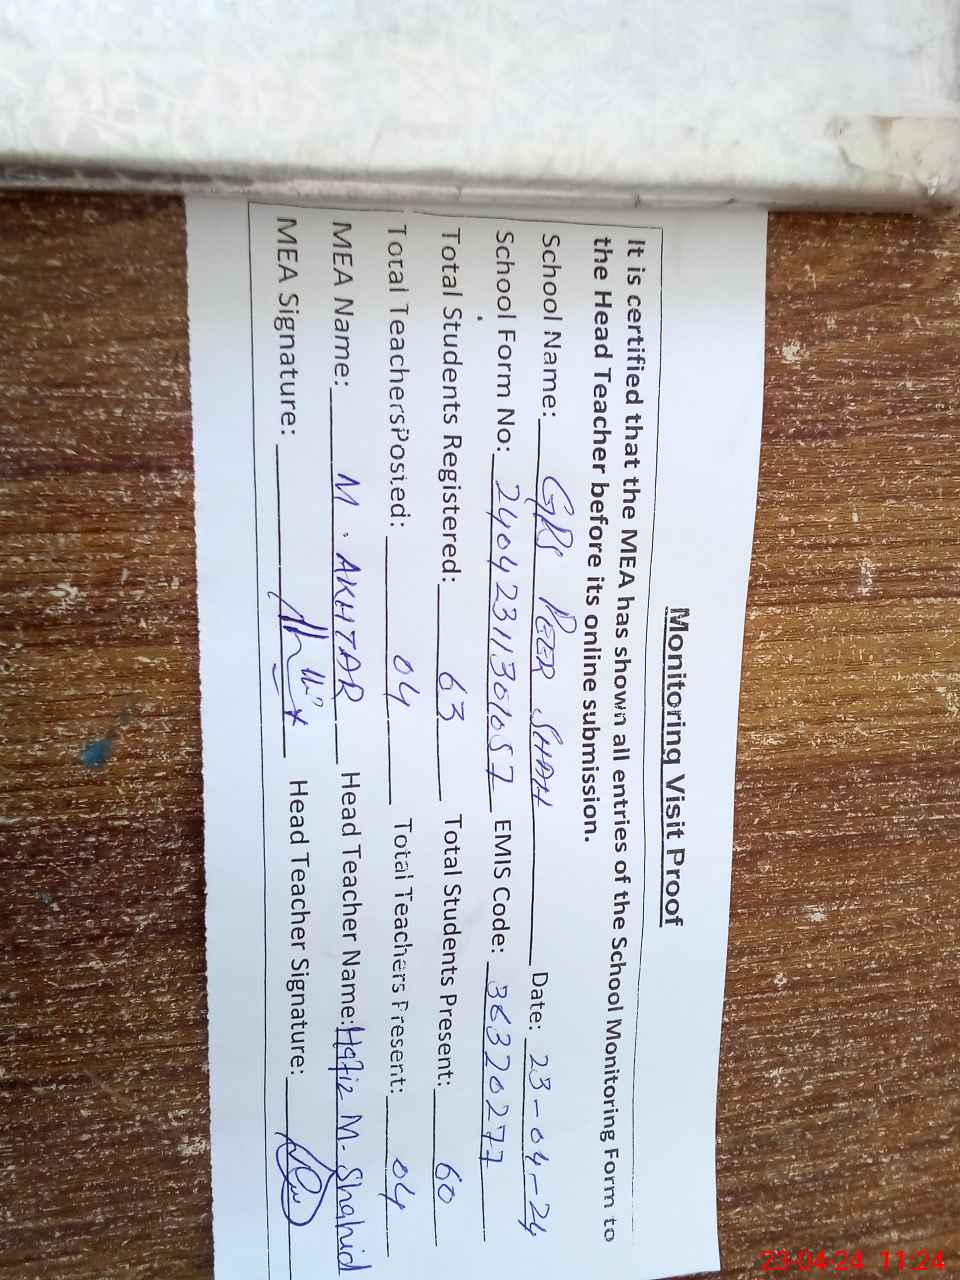 Monitoring Visit Proof
It is certified that the MEA has shown all entries of the School Monitoring Form to
the Head Teacher before its online submission.
School Name: GPS PEER SHAH Date: 23-04-24
School Form No: 24042311301057 EMIS Code: 36320277
Total Students Registered: 63 Total Students Present: 60
Total TeachersPosted: 04 Total Teachers Present: 04
MEA Name: M. AKHTAR Head Teacher Name: Hafiz M. Shahid
MEA Signature: Head Teacher Signature:
23-04-24 11:24